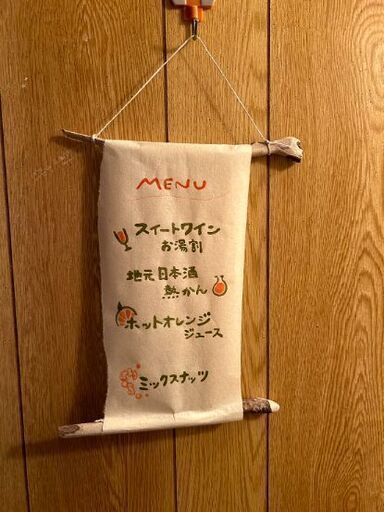 MENU
スイートワイン
お湯割
地元日本酒
熱かん
ホットオレンジ
ジュース
ミックスナッツ